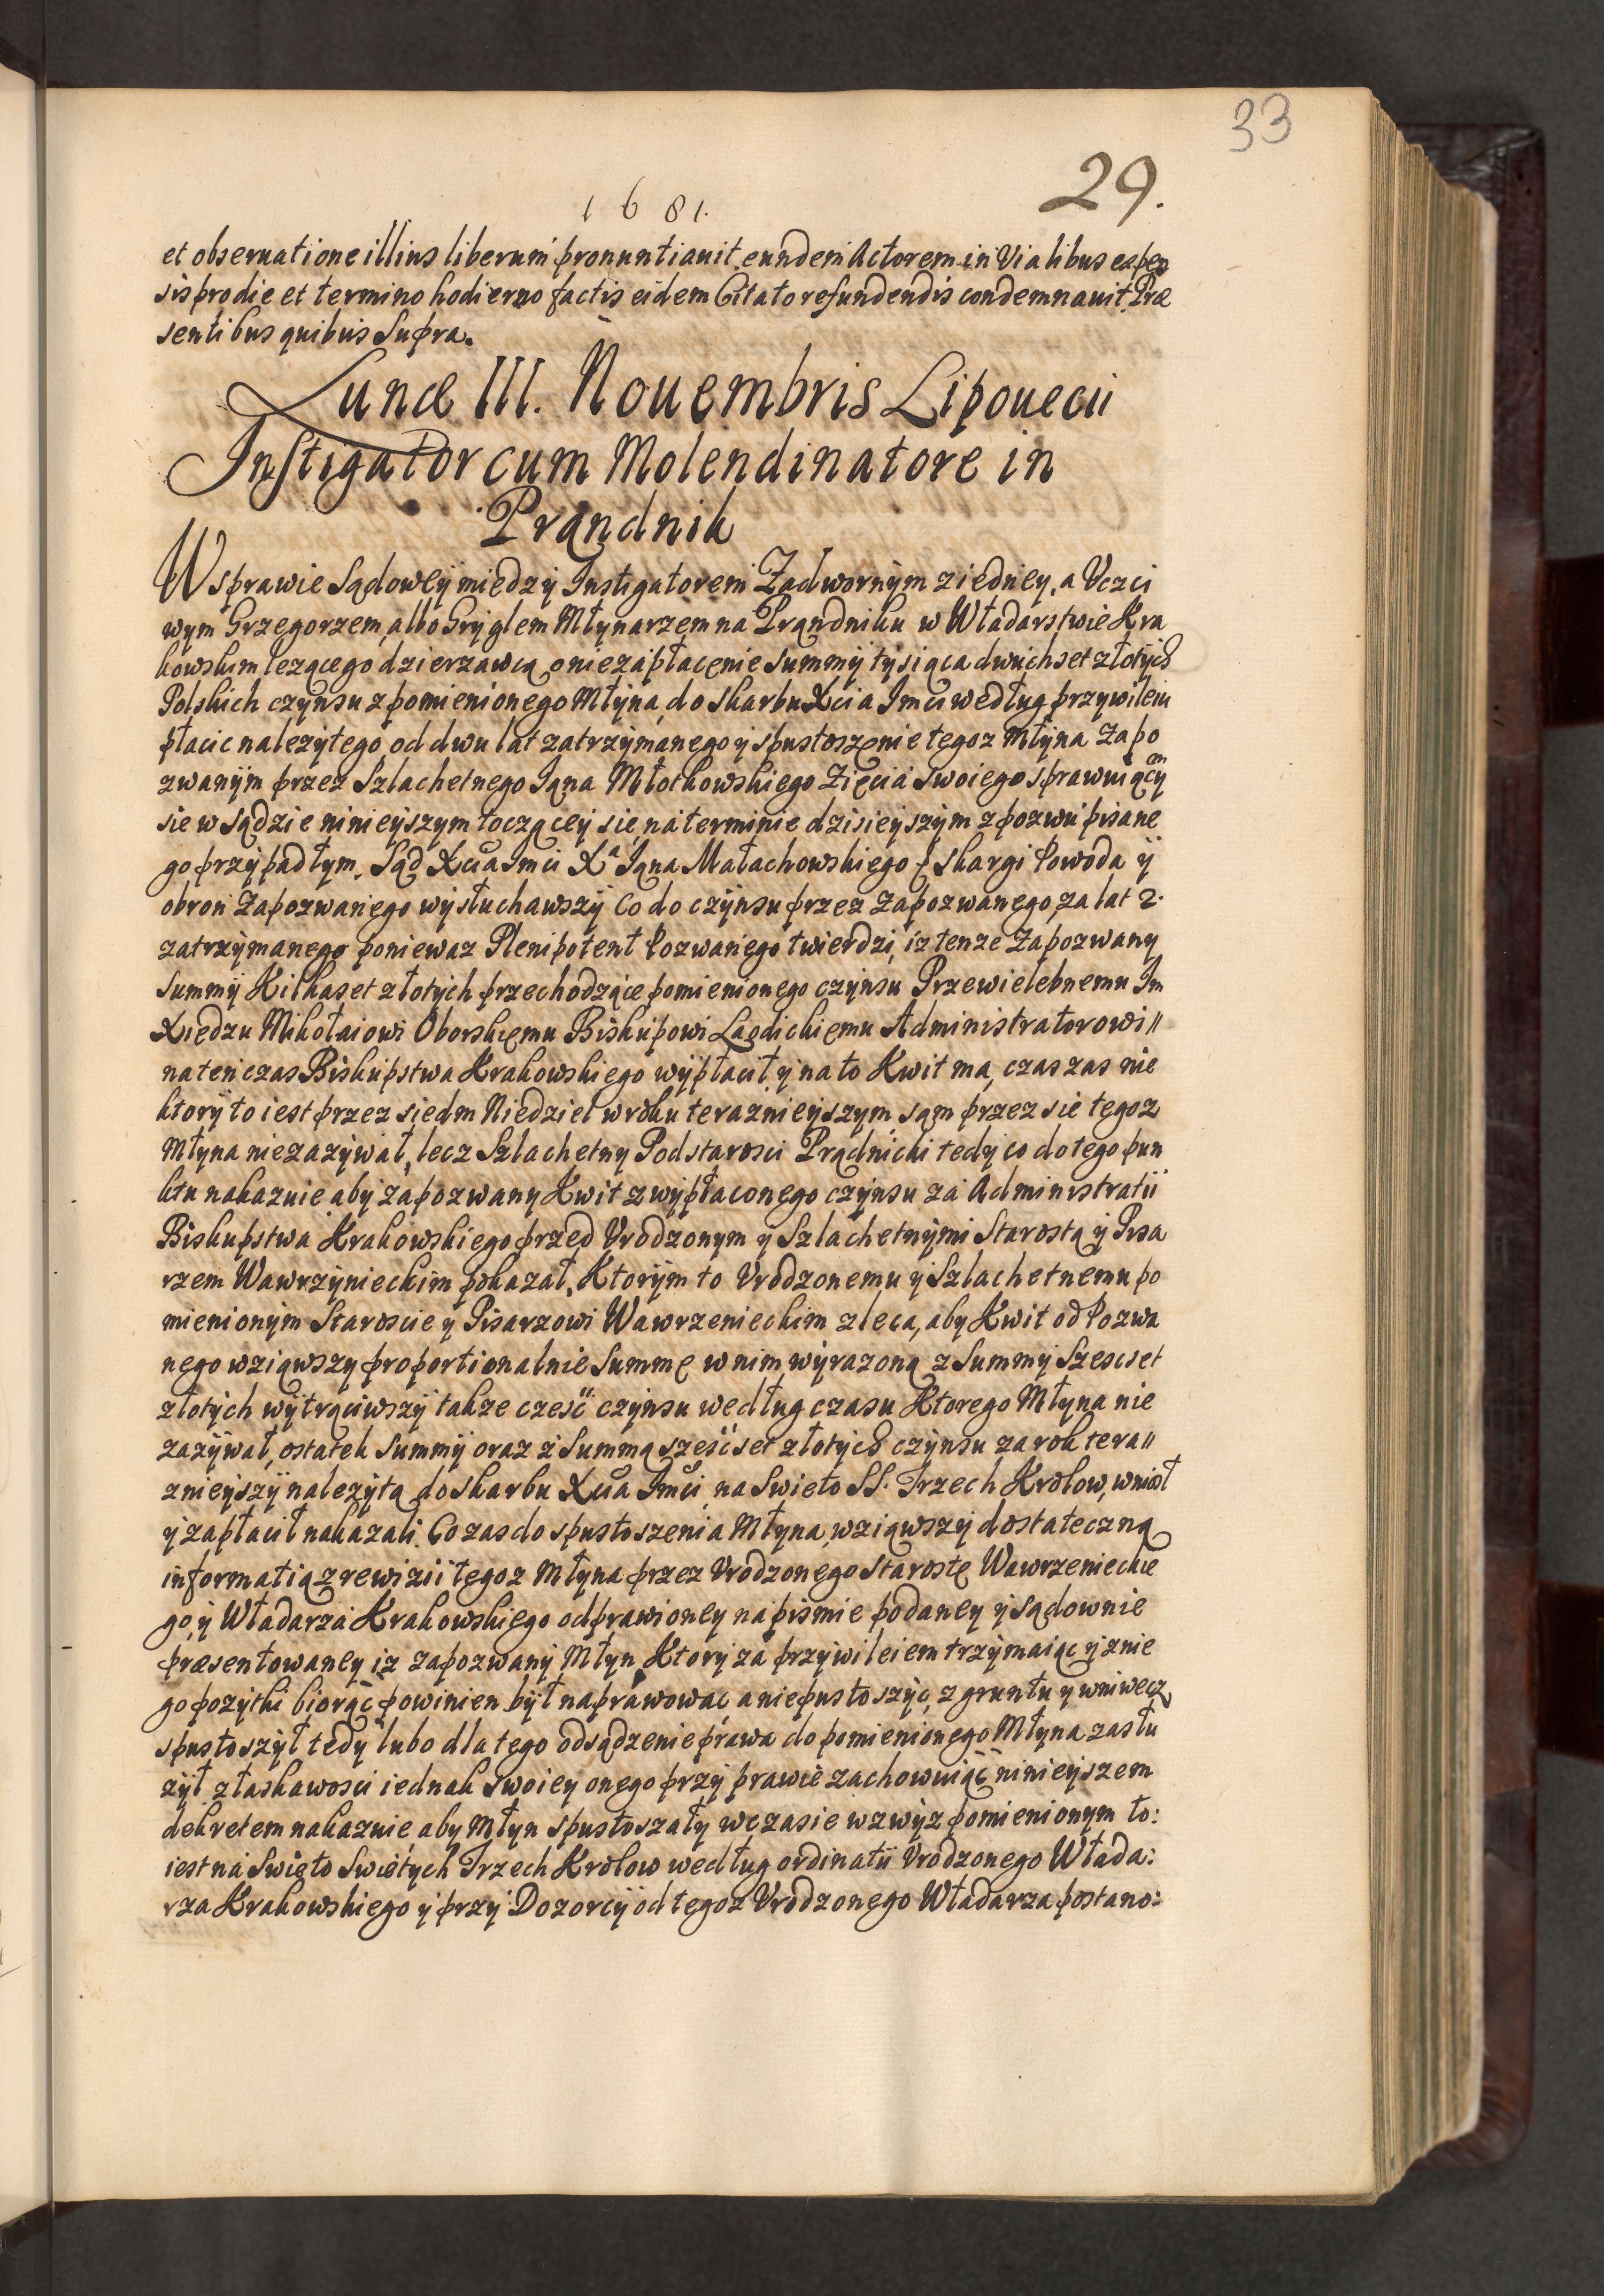 33
29.
1681.
et obseruatione illius liberum pronuntiauit, eundem Actorem in Vialibus expen
sis pro die et termino hodierno factis eidem Citato refundendis condemnauit. Præ
sentibus quibus Supra.
Lunæ III. Nouembris Lipouecii
Instigator cum Molendinatore in
Prądnik
W sprawie Sądowey między Instigatorem Zadwornym z iedney, a Vczci
wym Grzegorzem albo Gryglem Młynarzem na Prądniku w Władarstwie Kra
kowskim lezącego dzierzawcą o niezapłacenie summy tysiąca dwuchset złotych
Polskich czynsu z pomienionego Młyna, do skarbu Xcia Imci według przywileiu
płacic nalezytego od dwu lat zatrzymanego y spustoszenie tegoz Młyna Zapo
zwanym przez Szlachetnego Iana Młotkowskiego Zięcia swoiego sprawuiącym
sie w Sądzie ninieyszym toczącey sie, na terminie dzisieyszym z pozwu pisane
go przypadłym. Sąd Xcia Imci Xa Iana Małachowskiego skargi Powoda y
obron Zapozwanego wysłuchawszy Co do czynsu przez Zapozwanego za lat 2.
zatrzymanego poniewaz Plenipotent Pozwanego twierdzi, iz tenze Zapozwany
Summy Kilkaset złotych przechodzące pomienionego czynsu Przewielebnemu Im
Xiedzu Mikołaiowi Oborskiemu Biskupowi Laodickiemu Administratorowi //
na ten czas Biskupstwa Krakowskiego wypłacił y na to Kwit ma, czas zas nie
ktory to iest przez siedm Niedziel w roku teraznieyszym sam przez sie tegoz
Młyna niezazywał, lecz Szlachetny Podstarosci Prądnicki tedy co do tego pun
ktu nakazuie aby zapozwany Kwit z wypłaconego czynsu za Administratii
Biskupstwa Krakowskiego przed Vrodzonym y Szlachetnymi Starostą y Pisa
rzem Wawrzynieckim pokazał, Ktorym to Vrodzonemu y Szlachetnemu po
mienionym Staroscie y Pisarzowi Wawrzenieckim zleca, aby Kwit od Pozwa
nego wziąwszy proportionalnie Summę w nim wyrazoną z Summy Szescset
złotych wytrąciwszy takze czesć czynsu według czasu Ktorego Młyna nie
zazywał, ostatek Summy oraz z Summą sześćset złotych czynsu za rok tera//
znieyszy nalezytą do Skarbu Xcia Imci na Swieto SS. Trzech Krolow, wniosł
y zapłacił nakazali. Co zas do spustoszenia Młyna, wziąwszy dostateczną
informatią z rewizii tegoz Młyna przez Vrodzonego Starostę Wawrzenieckie
go, y Władarza Krakowskiego odprawioney na pismie podaney y sądownie
præsentowaney iz zapozwany Młyn, Ktory za przywileiem trzymaiąc y z nie
go pozytki biorąc powinien był naprawowac, a nie pustoszyc, z gruntu y wniwecz
spustoszył tedy lubo dla tego odsądzenie prawa do pomienionego Młyna zasłu
zył z łaskawosci iednak swoiey onego przy prawie zachowuiąc ninieyszem
dekretem nakazuie aby Młyn spustoszały w czasie wzwyz pomienionym to:
iest na Swięto Swiętych Trzech Krolow według ordinatii Vrodzonego Włada:
rza Krakowskiego y przy Dozorcy od tegoz Vrodzonego Władarza postano: